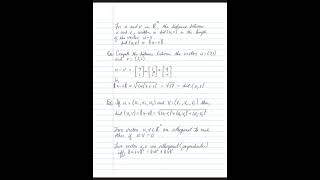 For u and v in ℝⁿ, the distance between
u and v, written as dist(u,v) is the length
of the vector u-v
dist(u,v) = ||u-v||
Ex: Compute the distance between the vectors u = (7,1)
and v = (3,2)
u-v = [7 1] - [3 2] = [4 -1]
||u-v|| = √(4)²+(-1)² = √17 = dist(u,v)
Ex: If u = (u₁, u₂, u₃) and v = (v₁, v₂, v₃) then
dist(u,v) = ||u-v|| = √(u₁-v₁)²+(u₂-v₂)²+(u₃-v₃)²
Two vectors u,v ∈ ℝⁿ are orthogonal to each
other if u·v = 0
Two vectors u,v are orthogonal (perpendicular)
iff ||u+v||² = ||u||² + ||v||²